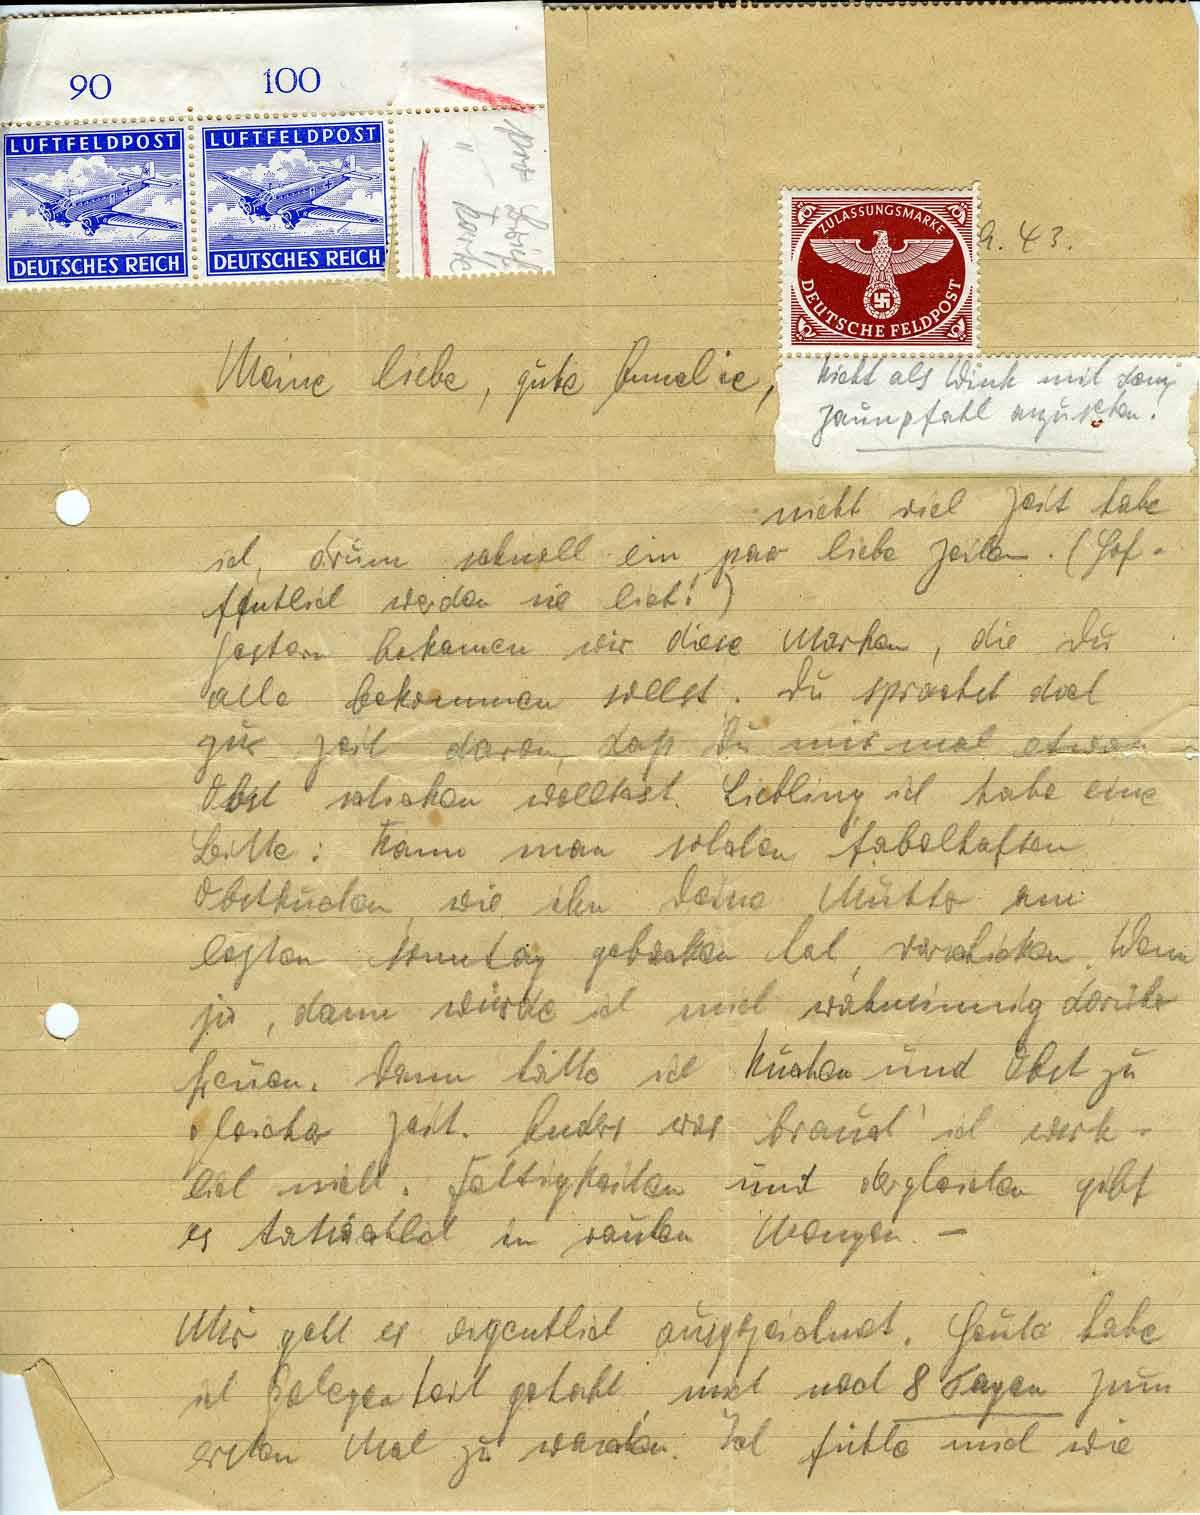 90 100
LUFTFELDPOST LUFTFELDPOST
DEUTSCHES REICH DEUTSCHES REICH
pro Brief
" Marke
ZULASSUNGSMARKE
DEUTSCHE FELDPOST
9. 43.
Meine liebe, gute Annelie,
Nicht als Wink mit dem
Zaunpfahl anzusehen.
nicht viel Zeit habe
ich, drum schnell ein paar liebe Zeilen. (Hof-
fentlich werden sie lieb!)
Gestern bekamen wir diese Marken, die Du
alle bekommen sollst. Du sprachst doch
zur Zeit davon, daß Du mir mal etwas
Obst schicken wolltest. Liebling ich habe eine
Bitte: Kann man solchen fabelhaften
Obstkuchen, wie ihn Deine Mutter am
letzten Sonntag gebacken hat, verschicken. Wenn
ja, dann würde ich mich wahnsinnig darüber
freuen. Dann bitte ich Kuchen und Obst zu
gleicher Zeit. Anders was brauch' ich wirk-
lich nicht. Fettigkeiten und dergleichen gibt
es tatsächlich in rauhen Mengen. —
Mir geht es eigentlich ausgezeichnet. Heute habe
ich Gelegenheit gehabt, mich nach 8 Tagen zum
ersten Mal zu waschen. Ich fühle mich wie